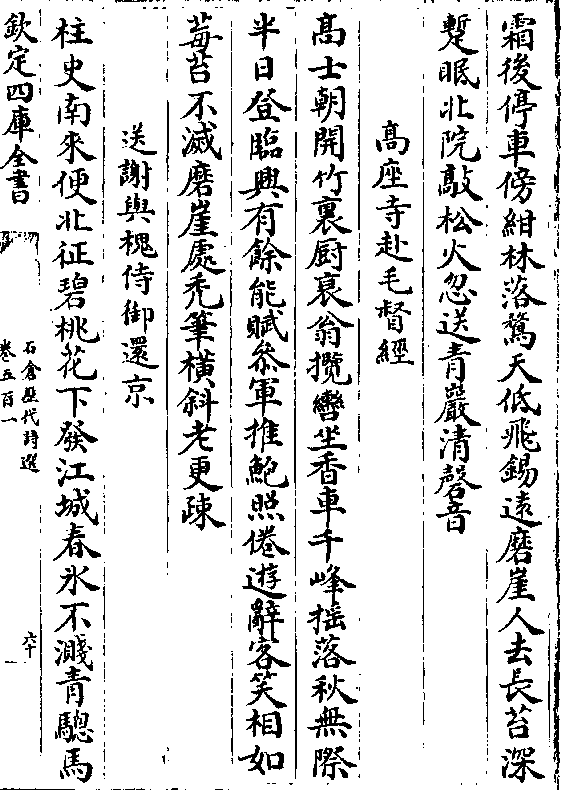 霜後停車傍紺林落鶩天低飛錫遠磨崖人去長苔深
蹔眠北院敲松火忽送青巖清磬音
高座寺赴毛督經
高士朝開竹裏厨衰翁攬轡坐香車千峰揺落秋無際
半日登臨興有餘能賦叅軍推鮑照倦遊辭客笑相如
莓苔不滅磨崖處禿筆橫斜老更疎
送謝與槐侍御還京
柱史南來便北征碧桃花下發江城春氷不濺青驄馬
欽定四庫全書
石倉歷代詩選
卷五百一
六十